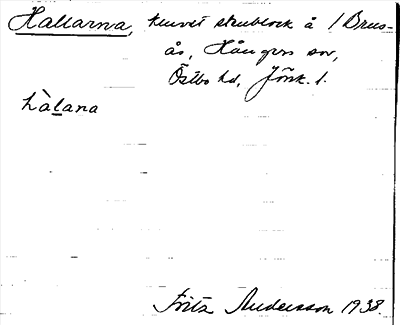 Hallarna, kluvet stenblock å 1 Brus-
ås, Hångers sn,
Östbo hd, Jönk. l.
hàlana
Fritz Andersson 1938.